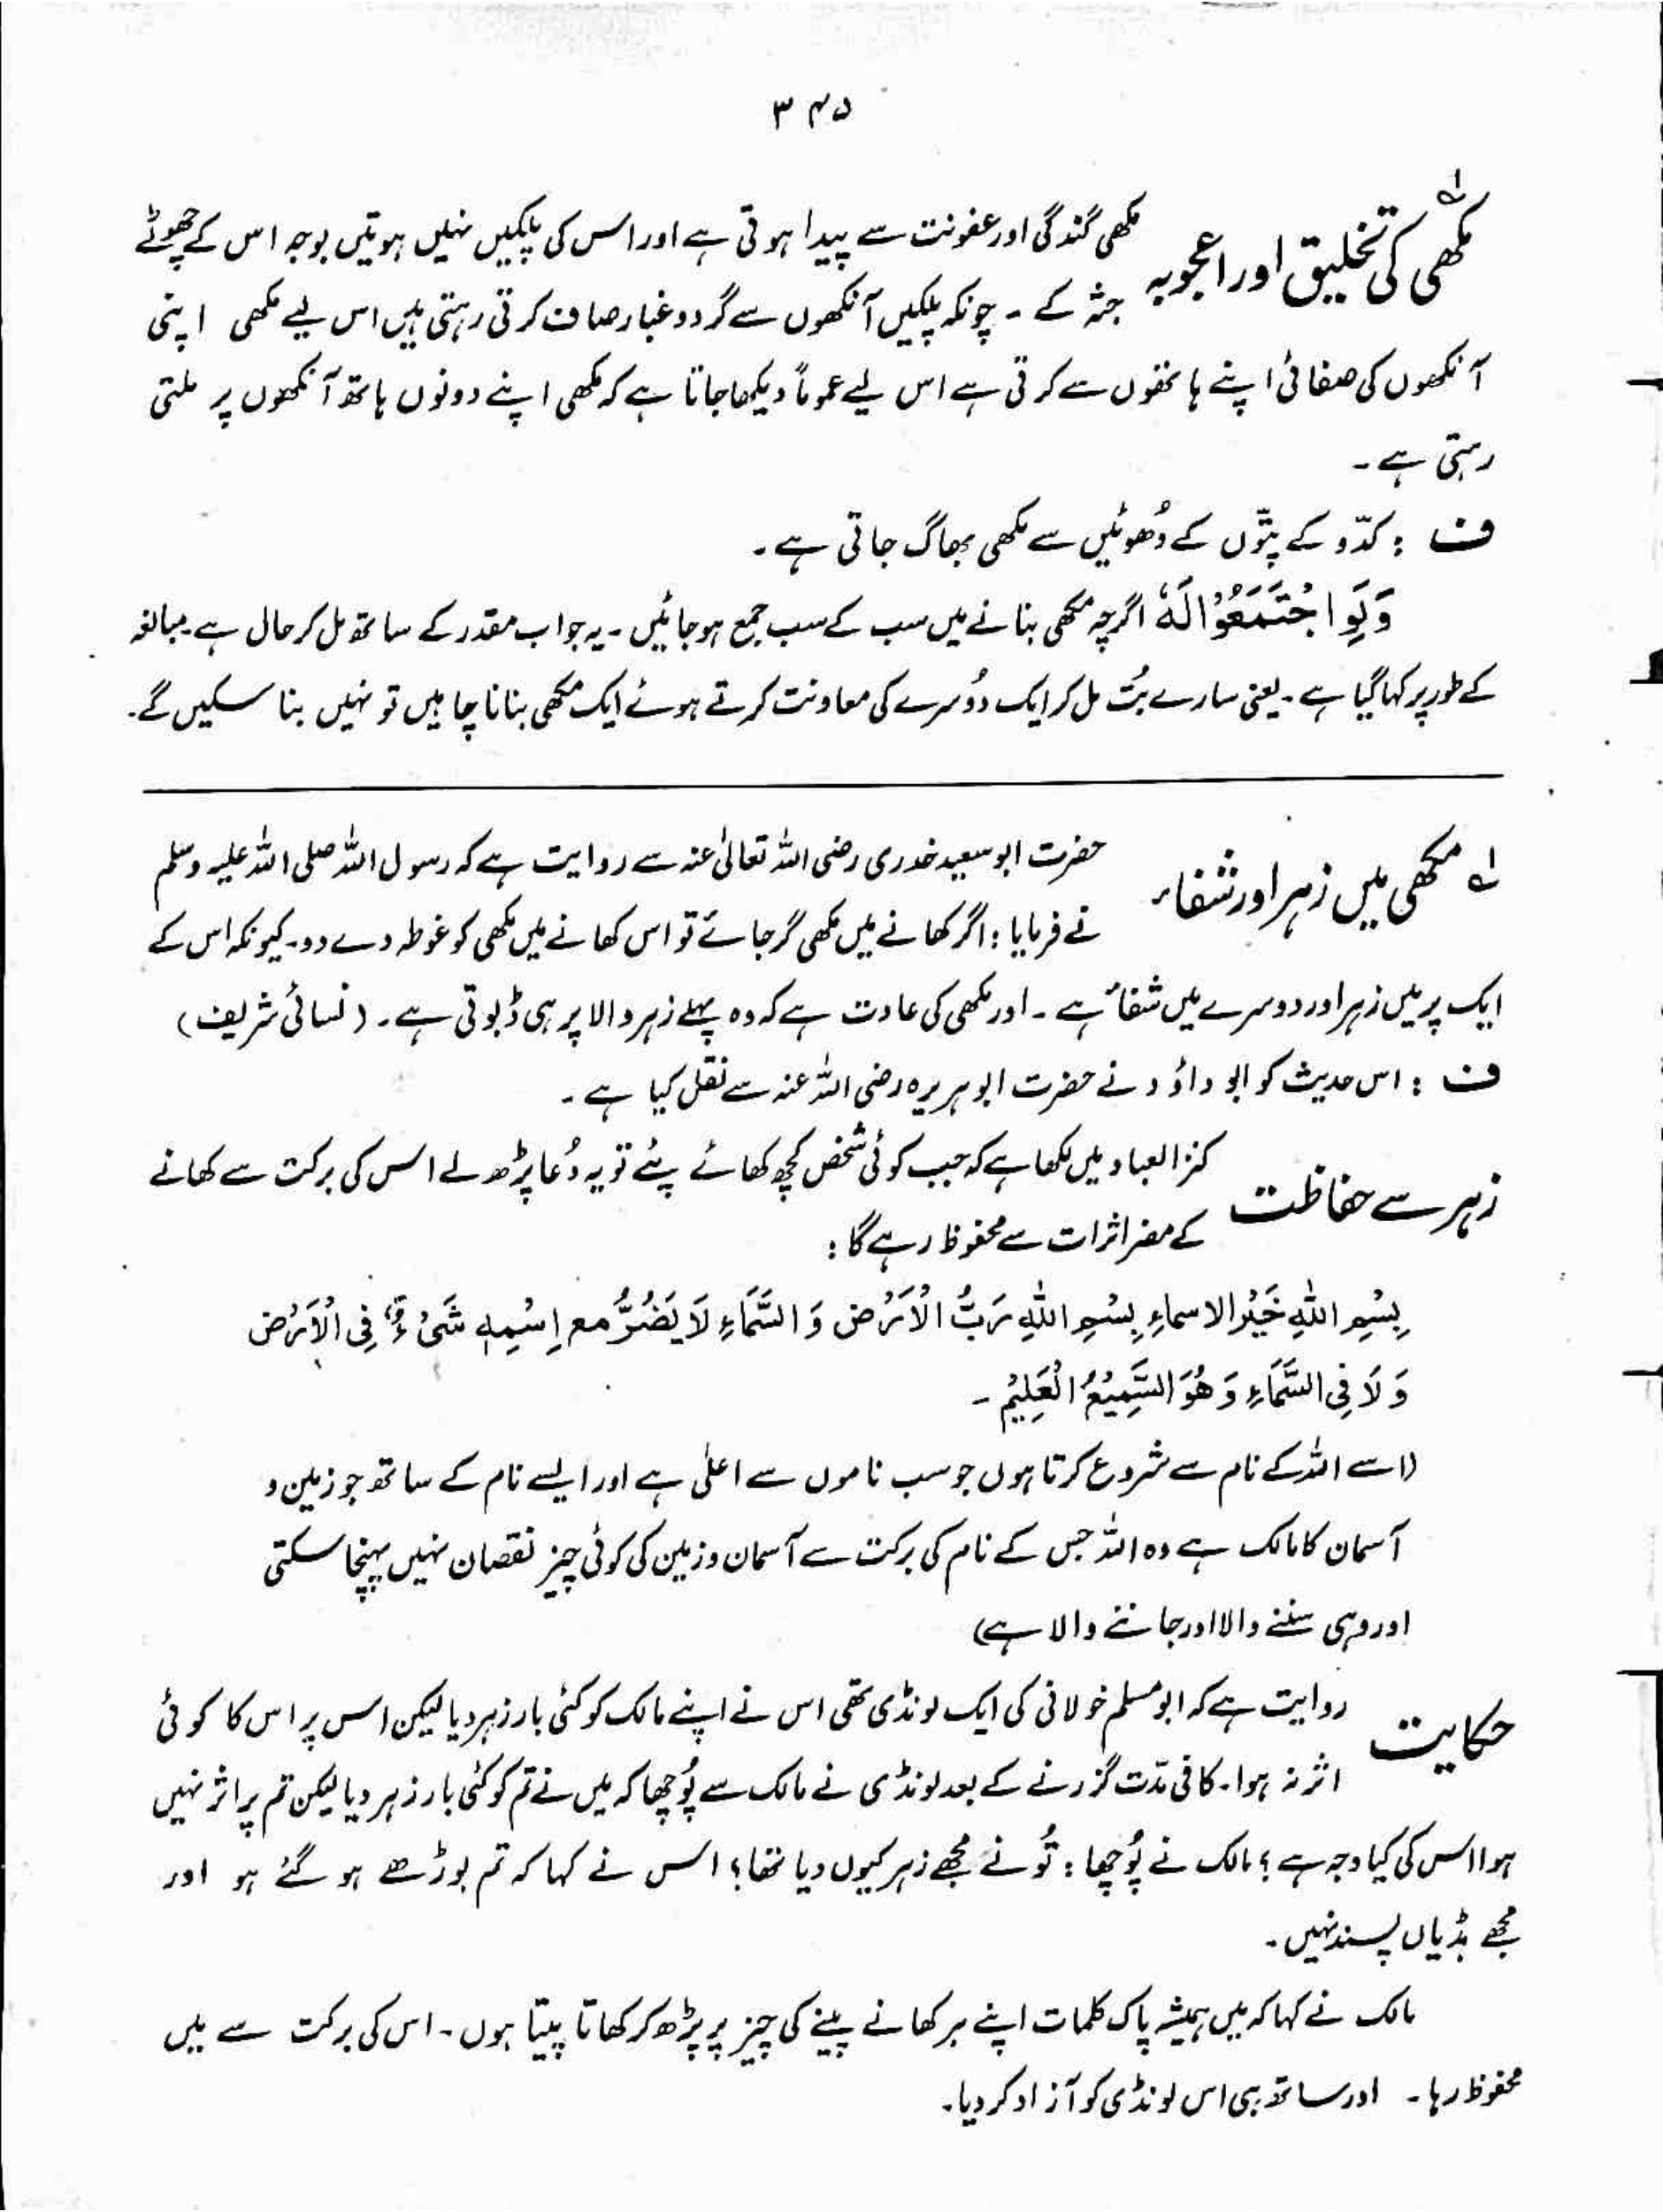 ۳۴۵
مکھی کی تخلیق اور اعجوبہ لہ مکھی گندگی اور عفونت سے پیدا ہوتی ہے اور اس کی پلکیں نہیں ہوتیں بوجہ اس کے چھوٹے
جثہ کے ۔ چونکہ پلکیں آنکھوں سے گرد و غبار صاف کرتی رہتی ہیں اس لیے مکھی اپنی
آنکھوں کی صفائی اپنے ہاتھوں سے کرتی ہے اس لیے عموماً دیکھا جاتا ہے کہ مکھی اپنے دونوں ہاتھ آنکھوں پر ملتی
رہتی ہے ۔
ف : کدّو کے پتّوں کے دُھوئیں سے مکھی بھاگ جاتی ہے ۔
وَلَوِ اجْتَمَعُوْا لَهٗ اگرچہ مکھی بنانے میں سب کے سب جمع ہو جائیں ۔ یہ جواب مقدر کے ساتھ مل کر حال ہے ۔ مبالغہ
کے طور پر کہا گیا ہے ۔ یعنی سارے بُت مل کر ایک دُوسرے کی معاونت کرتے ہوئے ایک مکھی بنانا چاہیں تو نہیں بنا سکیں گے ۔
لہ مکھی میں زہر اور شفاء حضرت ابوسعید خدری رضی اللہ تعالیٰ عنہ سے روایت ہے کہ رسول اللہ صلی اللہ علیہ وسلم
نے فرمایا : اگر کھانے میں مکھی گر جائے تو اس کھانے میں مکھی کو غوطہ دے دو ۔ کیونکہ اس کے
ایک پر میں زہر اور دوسرے میں شفاءٌ ہے ۔ اور مکھی کی عادت ہے کہ وہ پہلے زہر والا پر ہی ڈبوتی ہے ۔ (نسائی شریف)
ف : اس حدیث کو ابو داؤد نے حضرت ابوہریرہ رضی اللہ عنہ سے نقل کیا ہے ۔
زہر سے حفاظت کنز العباد میں لکھا ہے کہ جب کوئی شخص کچھ کھائے پئے تو یہ دُعا پڑھ لے اس کی برکت سے کھانے
کے مضر اثرات سے محفوظ رہے گا :
بِسْمِ اللّٰهِ خَيْرِ الاسماءِ بِسْمِ اللّٰهِ رَبُّ الْاَرْضِ وَ السَّمَاءِ لَا يَضُرُّ مع اِسْمِهٖ شَیْءٌ فِی الْاَرْضِ
وَ لَا فِی السَّمَاءِ وَ هُوَ السَّمِيْعُ الْعَلِيْمُ ۔
(اسے اللہ کے نام سے شروع کرتا ہوں جو سب ناموں سے اعلیٰ ہے اور ایسے نام کے ساتھ جو زمین و
آسمان کا مالک ہے وہ اللہ جس کے نام کی برکت سے آسمان و زمین کی کوئی چیز نقصان نہیں پہنچا سکتی
اور وہی سننے والا اور جاننے والا ہے)
حکایت روایت ہے کہ ابومسلم خولانی کی ایک لونڈی تھی اس نے اپنے مالک کو کئی بار زہر دیا لیکن اس پر اس کا کوئی
اثر نہ ہوا ۔ کافی مدّت گزرنے کے بعد لونڈی نے مالک سے پُوچھا کہ میں نے تم کو کئی بار زہر دیا لیکن تم پر اثر نہیں
ہوا اس کی کیا وجہ ہے ؟ مالک نے پُوچھا : تُو نے مجھے زہر کیوں دیا تھا ؟ اس نے کہا کہ تم بوڑھے ہو گئے ہو اور
مجھے ہڈیاں پسند نہیں ۔
مالک نے کہا کہ میں ہمیشہ پاک کلمات اپنے ہر کھانے پینے کی چیز پر پڑھ کر کھاتا پیتا ہوں ۔ اس کی برکت سے میں
محفوظ رہا ۔ اور ساتھ ہی اس لونڈی کو آزاد کر دیا ۔